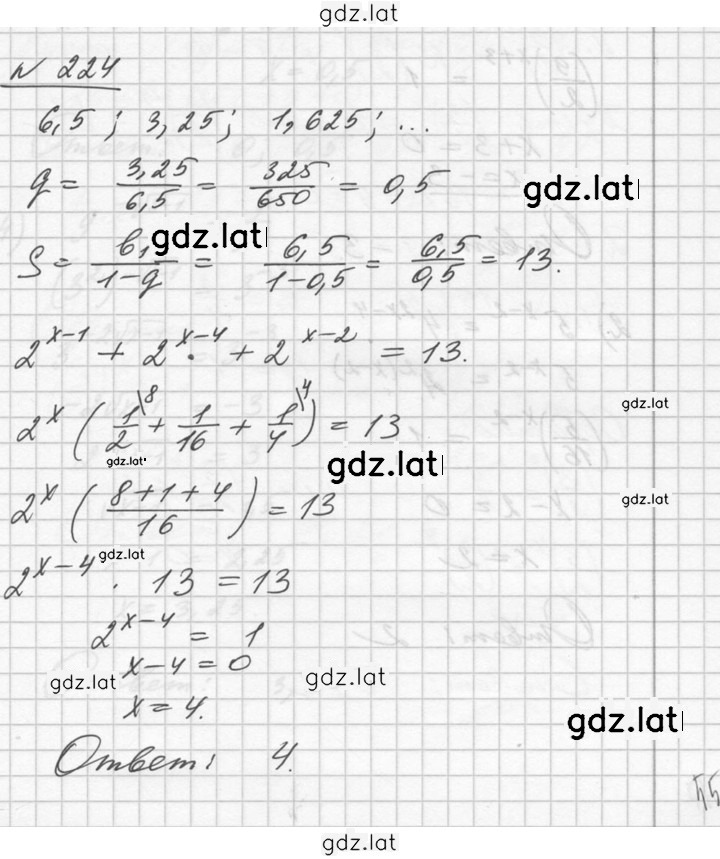 gdz.lat
N 224
6,5 ; 3,25 ; 1,625 ; ...
q = 3,25/6,5 = 325/650 = 0,5
gdz.lat
gdz.lat
S = b₁/(1-q) = 6,5/(1-0,5) = 6,5/0,5 = 13.
2^(x-1) + 2^(x-4) + 2^(x-2) = 13.
gdz.lat
2^x (1/2 \8 + 1/16 + 1/4 \4) = 13
gdz.lat
gdz.lat
2^x ((8+1+4)/16) = 13
gdz.lat
gdz.lat
2^(x-4) · 13 = 13
2^(x-4) = 1
x-4 = 0
gdz.lat
gdz.lat
x = 4.
gdz.lat
Ответ: 4.
55
gdz.lat